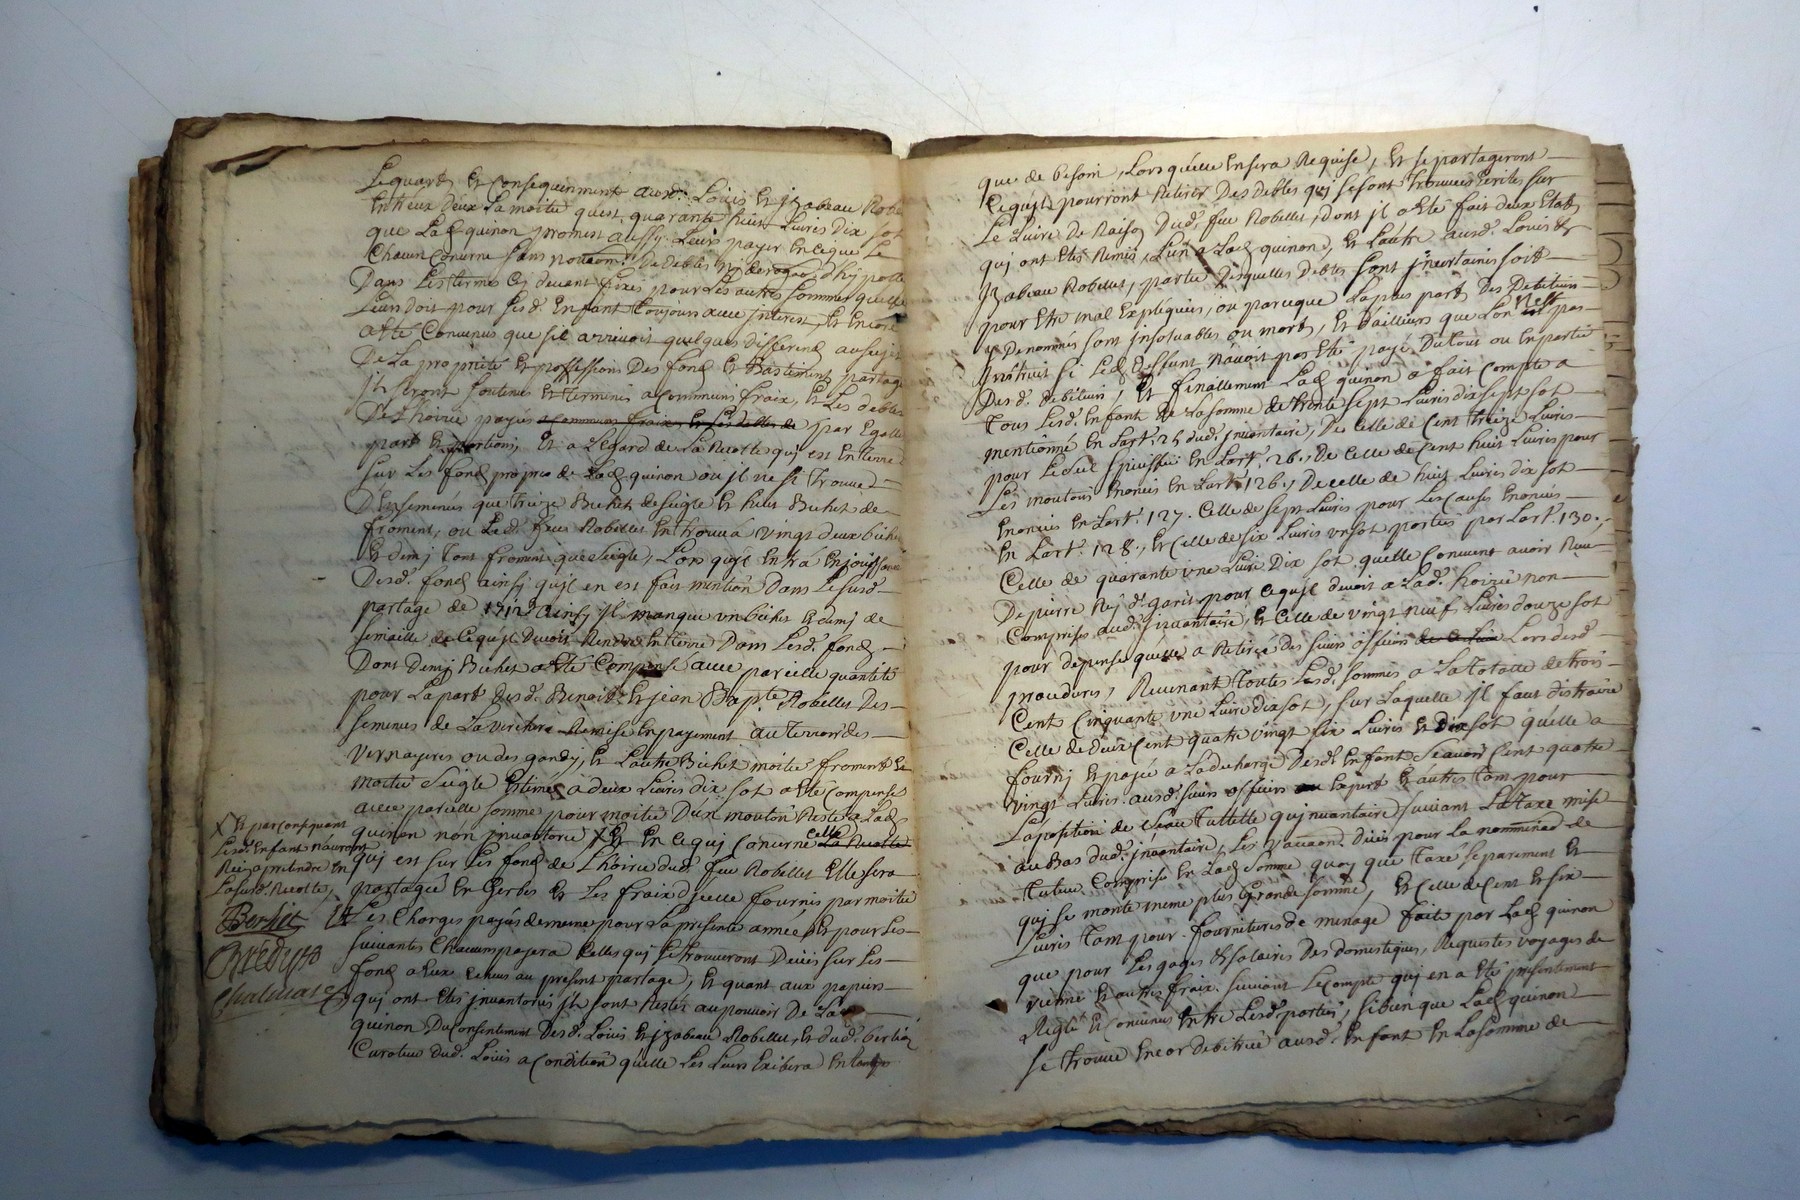 Le quart, et consequemment ausd. Loüis et jzabeau Robe
entreux deux la moitié quest quarante huit Livres dix sot
que Lad. quinon promet aussy leurs payer en ce que le
Chacun Concerne sans novaõn de debtes nj derogaõn d'hypote
Dans les termes Cy devant fixes pour les autres sommes quelle
Leurs doit pour sesd. Enfant toujours avec jnterest, Et encore
a été Convenus que sil arrivoit quelques differend au sujet
De la proprieté et possessions Des fond et Bastement partagé
jls seront soutenus et terminés a communs fraix, et les debtes
De L'hoirie payés a communs fraix et les debtes de par Egalles
part et portions, Et a L'egard de la Recolte quj est en terre
sur les fond propres de Lad. quinon ou jl ne se trouve
D'ensemencés que treize Bichet de seigle et huit Bichet de
froment, ou Led. feu Robellet en trouva vingt deux biche
et demj tant froment que seigle, Lors qu'jl entra en jouissance
Desd. fond ainsj qu'jl en est fait mention Dans le susd.
partage de 1712 ainsj jl manque un bichet et demj de
semaille de ce qu'jl Devoit Rendre en terre Dans lesd. fond
Dont demj Bichet a été Compensé avec pareille quantité
pour la part desd. Benoit et jean Bapte. Robellet Des
semences de la verchere Remise en payement au terroir des
vernayeres ou des gandj, et l'autre Bichet moitié froment et
moitié seigle estimés à deux Livres dix sot a été compensé
avec pareille somme pour moitié D'un mouton Resté a Lad.
quinon non jnvantorié X Et en ce quj Concerne celle La Recolte
X Et par consequant
Lesd. Enfant n'auront
Rien a pretendre en
La susd. Recolte,
quj est sur les fond de L'hoirie dud. feu Robellet Elle sera
partagée en Gerbes et les fraix d'jcelle fournis par moitié
Et Les Charges payés de meme pour la presente année, et pour les
suivantes Chacun payera Celles quj se trouveront Deües sur les
fond a Eux echeus au present partage, et quant aux papiers
quj ont étés jnvantoriés jls sont Restés au pouvoir De Lad.
quinon Du Consentement Desd. Loüis et jzabeau Robellet, et dud. berliet
Curateur dud. Loüis a condition qu'elle Les leurs Exibera en tamps
que de besoin, Lors qu'elle en sera Requise, Et se partageront
Ce qu'jls pourront Retirer Des debtes quj se sont trouvées Ecrites sur
Le Livre de Raison Dud. feu Robellet, dont jl a été fait deux Etat
quj ont étés Remis, L'un a Lad. quinon, et L'autre ausd. Loüis et
jzabeau Robellet, partie Desquelles debtes sont jncertaines soit
pour etre mal Expliquées, ou parceque la plus part Des Debiteurs
y Denommés sont jnsolvables ou mort, et d'ailleurs que Lon n'est pas
jnstruit si Led. deffunt n'avoit pas été payé Du tout ou en partie
Desd. debiteurs, Et finallement Lad. quinon a fait Compte a
tous Lesd. Enfant de la somme de trente sept Livres dix sept sot
mentionné en L'art. 25 dud. jnvantaire, De Celle de Cent treize Livres
pour en L'art. 26., De Celle de Cent huit Livres pour
Les moutons Enoncés en L'art. 126., De celle de huit Livres dix sot
Enoncés en L'art. 127. Celle de sept Livres pour les Causes Enoncées
en L'art. 128., et Celle de six Livres un sot portés par L'art. 130.
Celle de quarante une Livre Dix sot quelle Convient avoir Receu
De pierre Rej d. garit pour ce qu'jl devoit a Lad. hoirie non
Comprise aud. jnvantaire, et Celle de vingt neuf Livres douze sot
pour depense quelle a Retirée des sieurs officiers Lors desd.
procedures, Revenant toutes Lesd. sommes a la totalle de trois
Cent Cinquante une Livre dix sot, sur Laquelle jl faut distraire
Celle de deux Cent quatre vingt six Livres et dix sot qu'elle a
fournj et payée a la decharge Desd. Enfant sçavoir Cent quatre
vingt Livres ausd. sieurs officiers Expert et autres tam pour
Laposition de sceau tutelle qu jnvantaire suivant La taxe mise
au Bas dud. jnvantaire, Les vacaõns Deües pour la nominaõn de
tuteur Comprise en Lad. somme quoy que taxé separement et
quj se monte meme plus Grande somme, et Celle de Cent et six
Livres tam pour fournitures de menage fait par Lad. quinon
que pour Les gages et salaires Des domestiques, Requestes voyages de
vienne et autres fraix suivant le Compte quj en a été presentement
Reglé et Convenus entre Lesd. parties, si bien que Lad. quinon
se trouve encor debitrice ausd. Enfant en la somme de